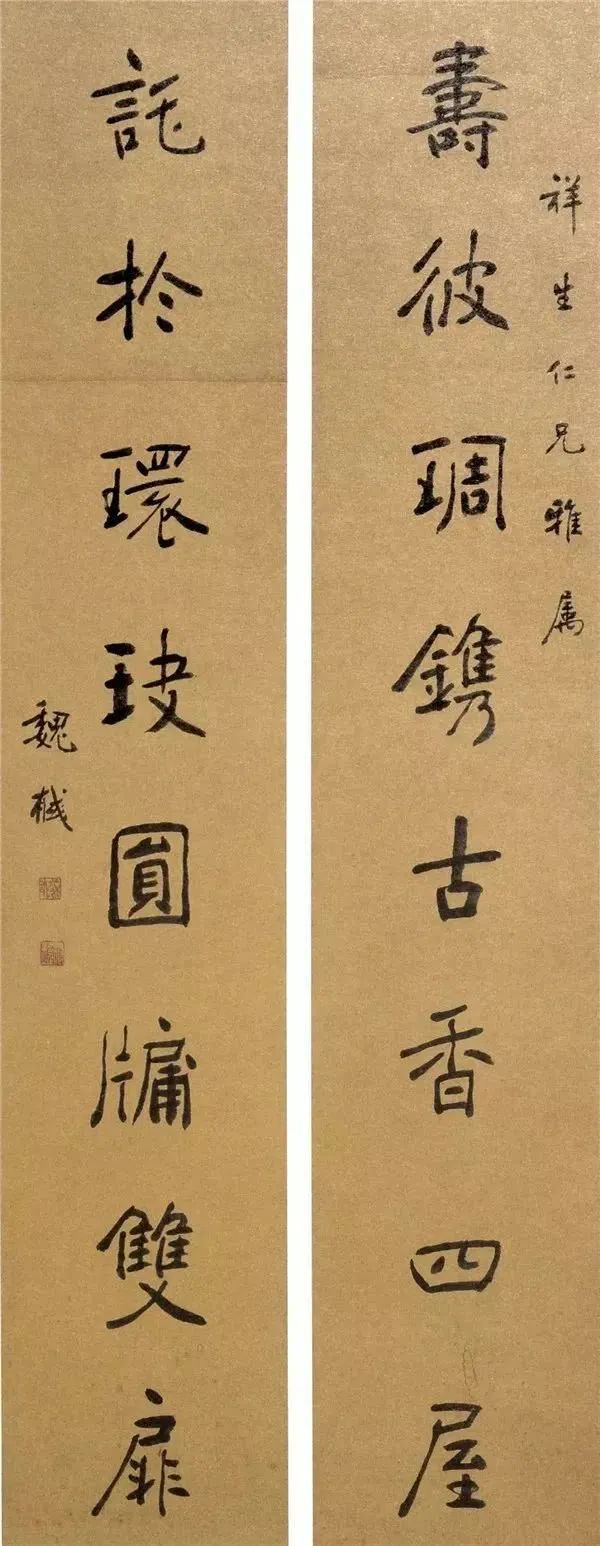 祥生仁兄雅属
壽彼琱鐫古香四屋
託於環玦圓牗雙扉
魏戫